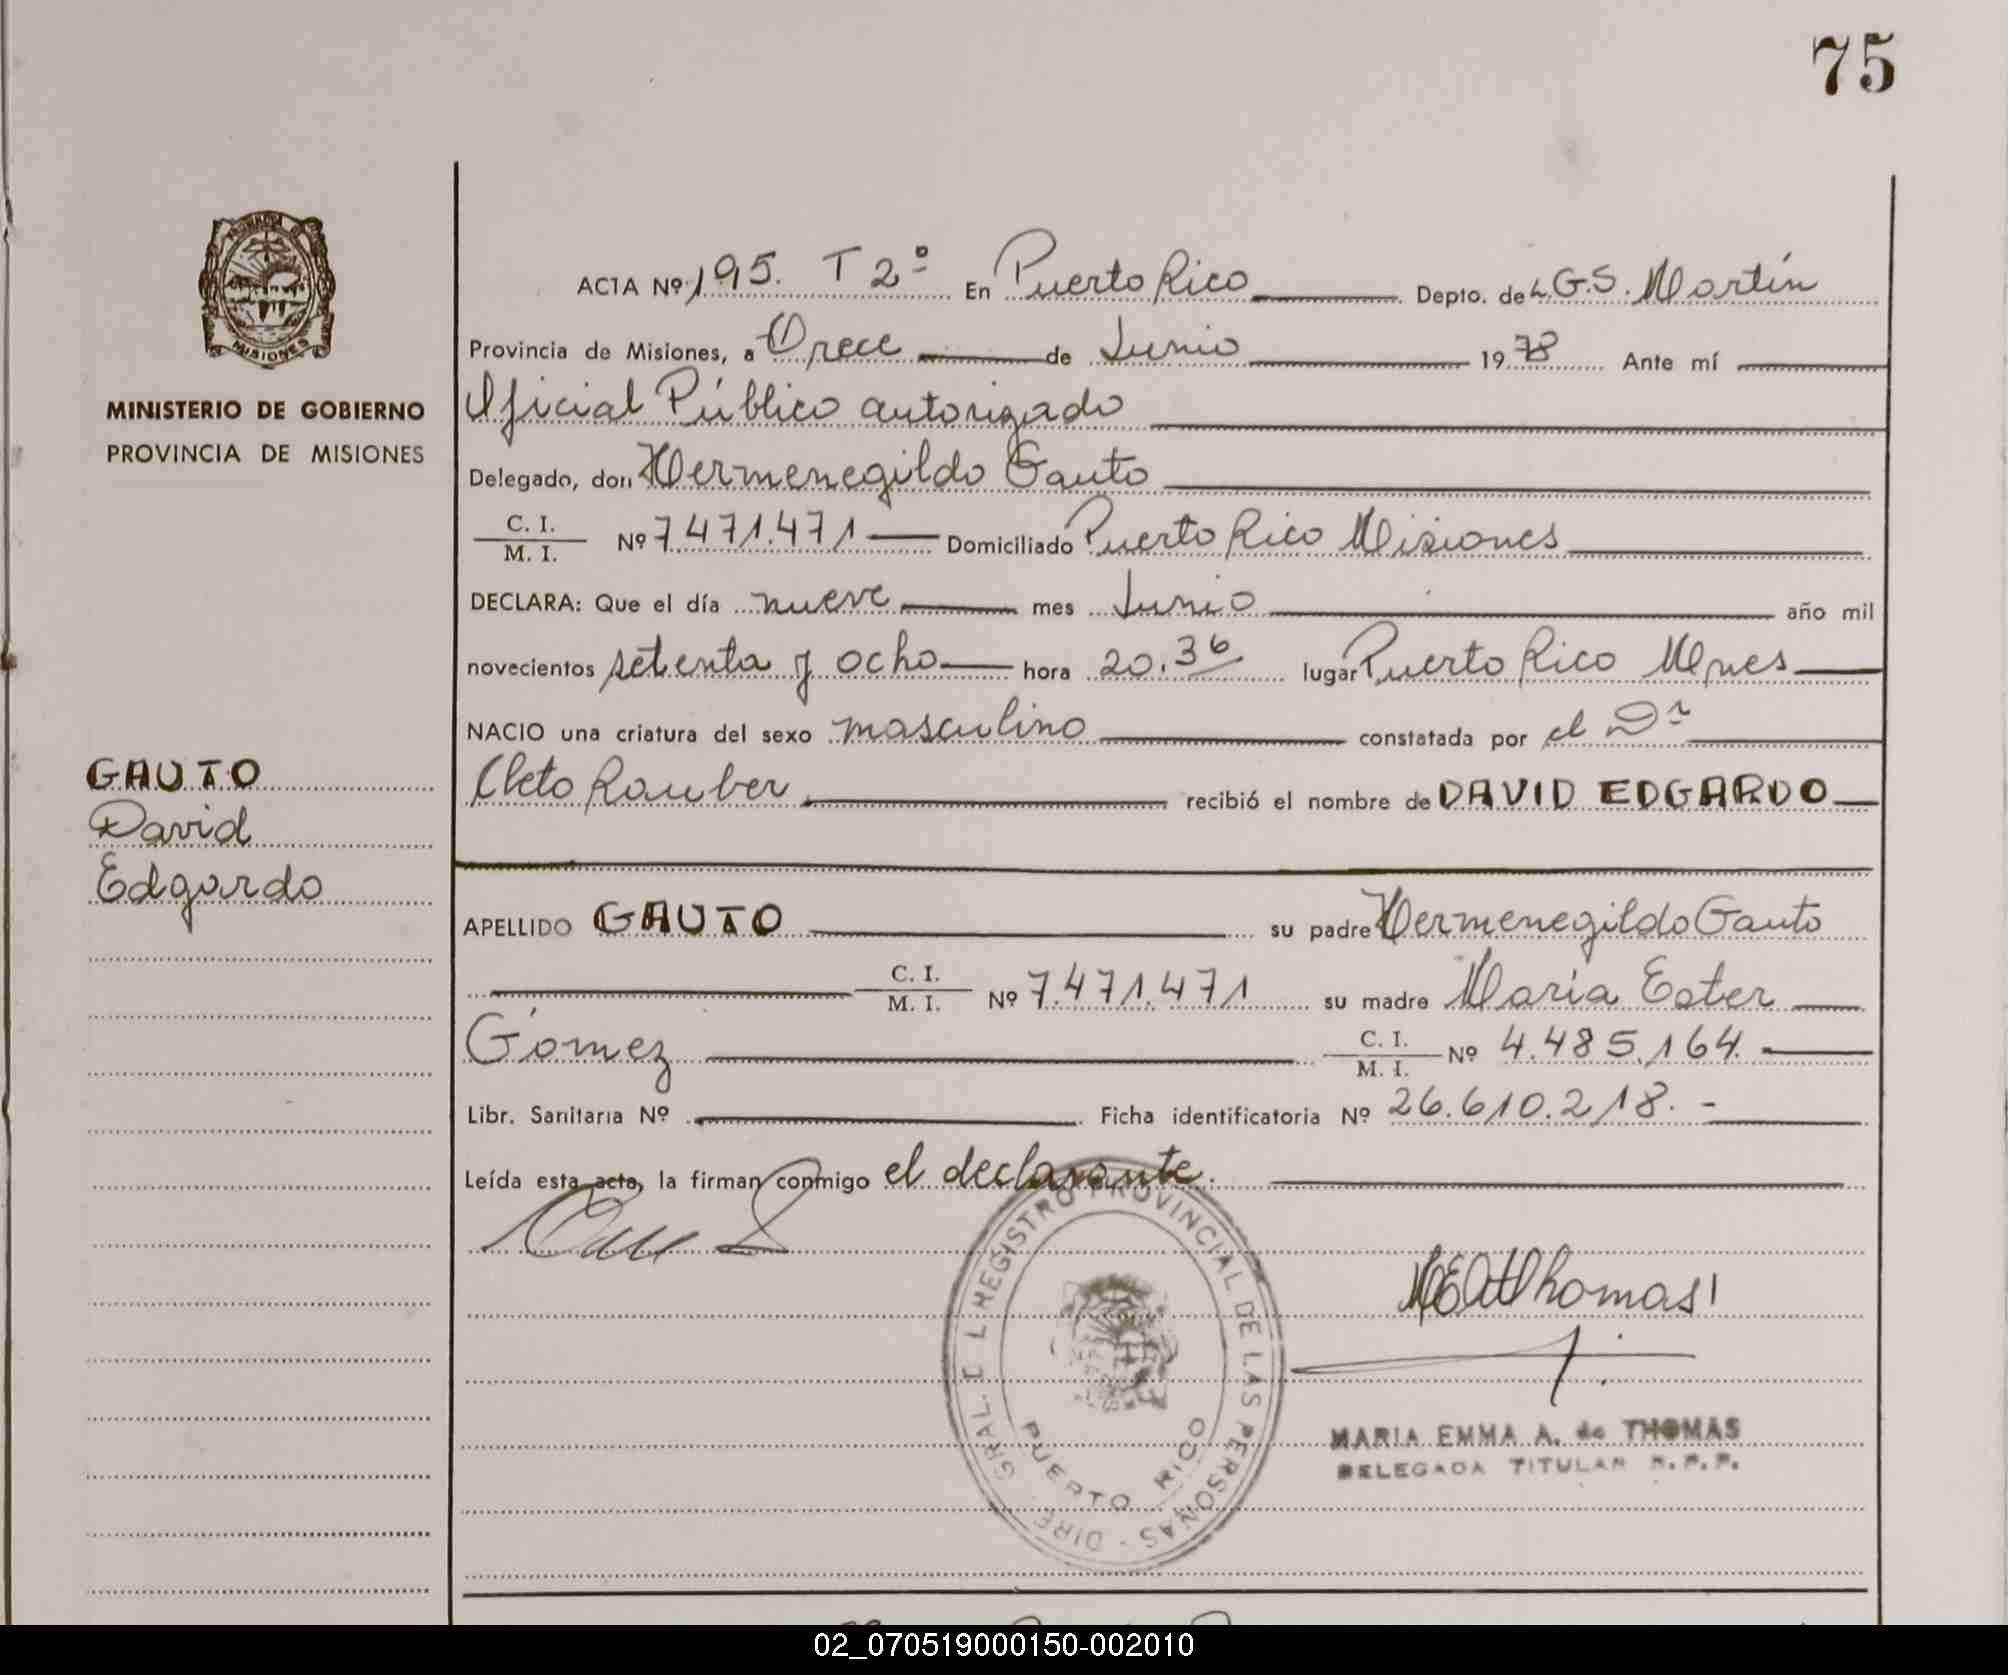 75
ACTA Nº 195. T 2º En Puerto Rico Depto. de L.G.S. Martín
Provincia de Misiones, a Trece de Junio 1978 Ante mí
MISIONES
MINISTERIO DE GOBIERNO
PROVINCIA DE MISIONES
Oficial Público autorizado
Delegado, don Hermenegildo Gauto
C. I.
M. I. Nº 7.471.471 Domiciliado Puerto Rico Misiones
DECLARA: Que el día nueve mes Junio año mil
novecientos setenta y ocho hora 20.36 lugar Puerto Rico Mnes
NACIO una criatura del sexo masculino constatada por el Dr
Cleto Rauber recibió el nombre de DAVID EDGARDO
GAUTO
David
Edgardo
APELLIDO GAUTO su padre Hermenegildo Gauto
C. I.
M. I. Nº 7.471.471 su madre María Ester
Gómez C. I.
M. I. Nº 4.485.164
Libr. Sanitaria Nº Ficha identificatoria Nº 26.610.218. -
Leída esta acta, la firman conmigo el declarante.
MEAThomas
DIRE GRAL. DEL REGISTRO PROVINCIAL DE LAS PERSONAS -
PUERTO RICO
MARIA EMMA A. de THOMAS
DELEGADA TITULAR R. P. P.
02_070519000150-002010